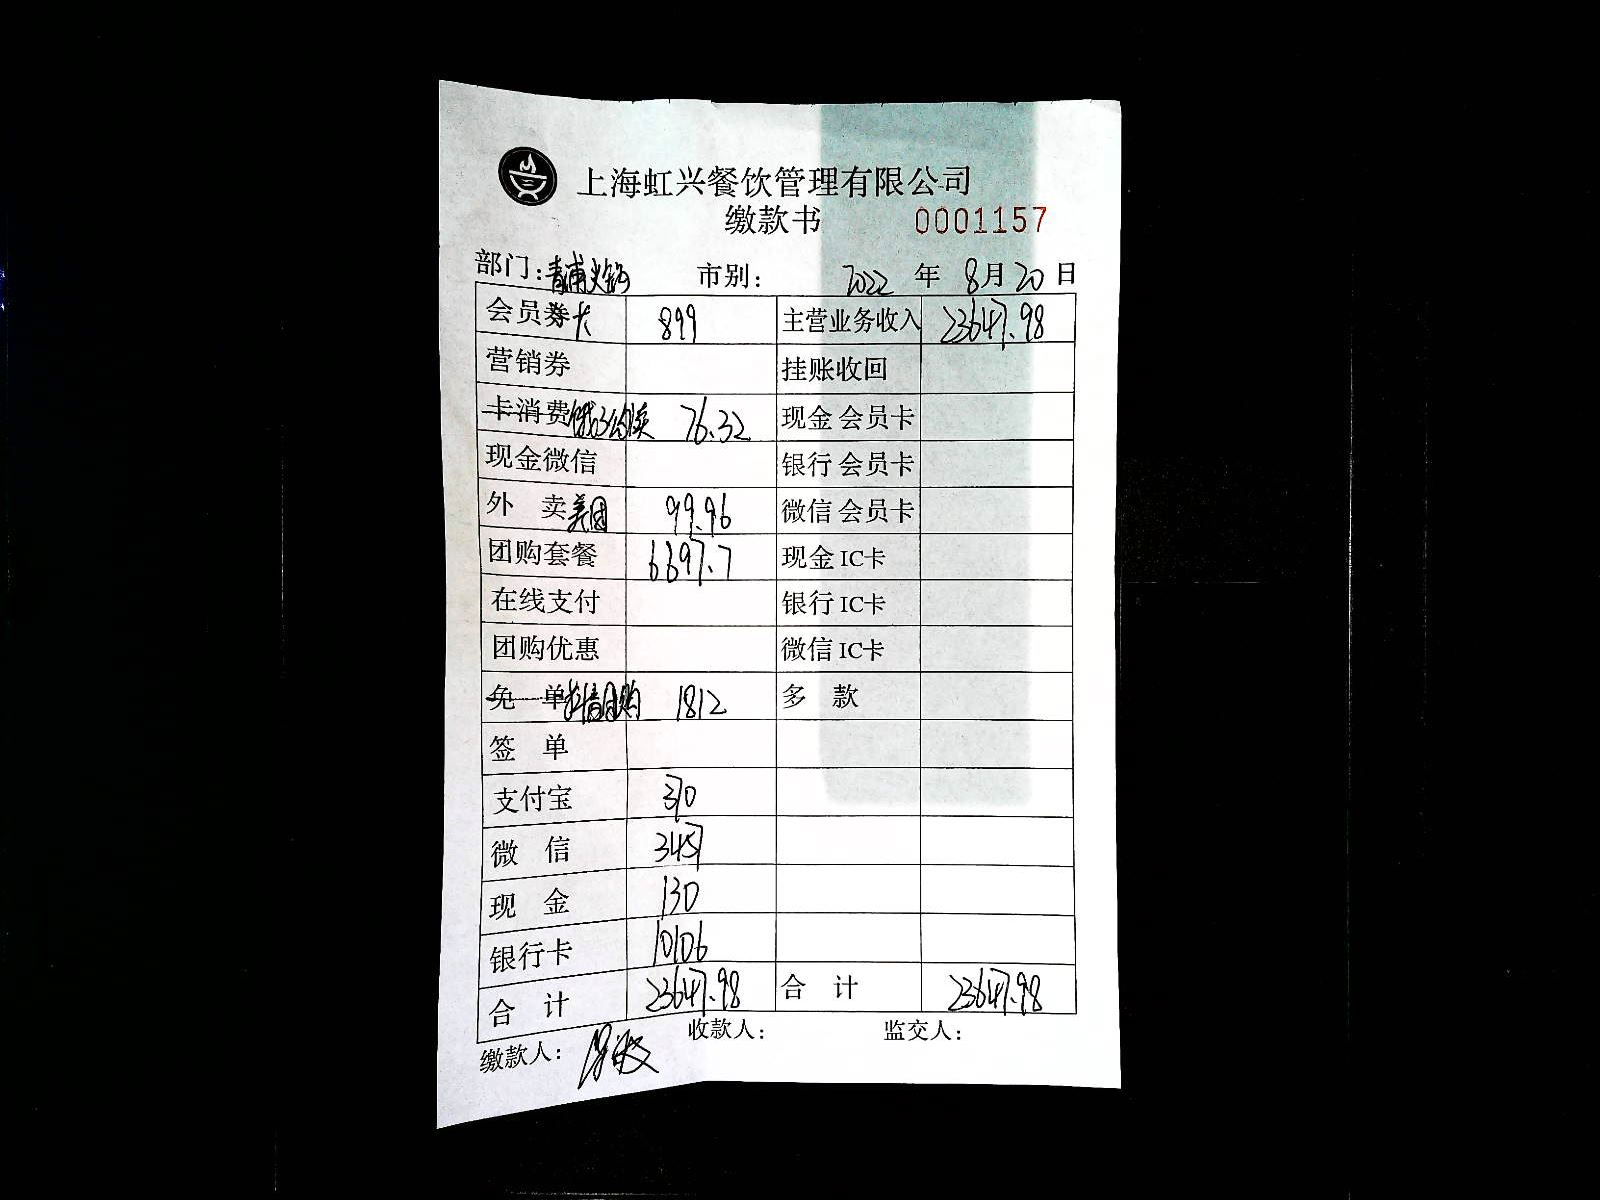 上海虹兴餐饮管理有限公司
缴款书 0001157
部门:青浦火锅 市别: 2022 年 8月20日
会员券卡 899 主营业务收入 23647.98
营销券 挂账收回
卡消费 76.32 现金 会员卡
现金微信 银行 会员卡
外 卖美团 99.96 微信 会员卡
团购套餐 6697.7 现金 IC卡
在线支付 银行 IC卡
团购优惠 微信 IC卡
免 单抖音团购 1812 多 款
签 单
支付宝 370
微 信 3457
现 金 130
银行卡 10106
合 计 23647.98 合 计 23647.98
缴款人: 收款人: 监交人: